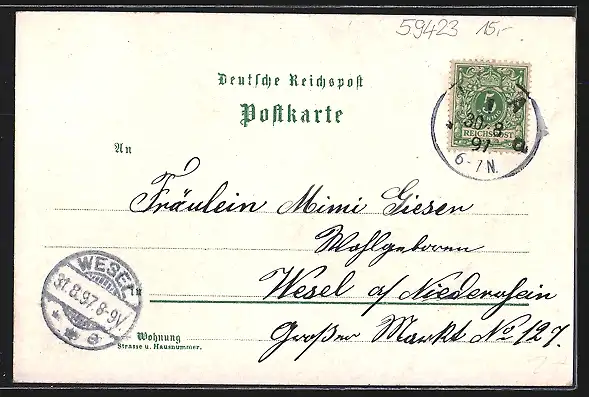 59423 15,-
Deutsche Reichspost
Postkarte
5
REICHSPOST
30 8
97
6-7N.
a
An
Fräulein Mimi Giesen
Wohlgeboren
WESEL
31.8.97.8-9V.
e
in
Wesel a/ Niederrhein
Wohnung
Strasse u. Hausnummer.
Großer Markt No 127.